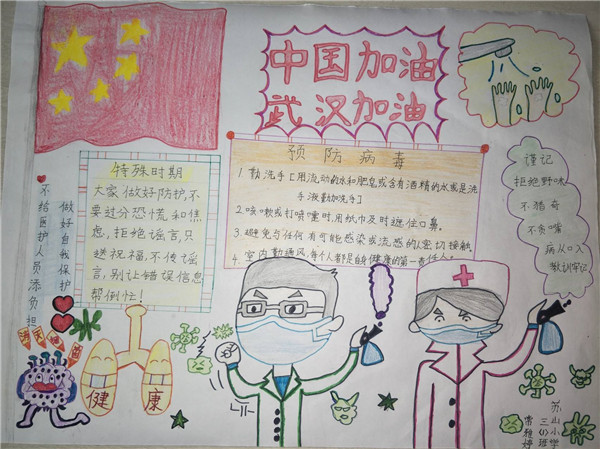 中国加油
武汉加油
特殊时期
大家做好防护,不
要过分恐慌和焦
虑,拒绝谣言,只
送祝福,不传谣
言,别让错误信息
帮倒忙!
预防病毒
1 勤洗手[用流动的水和肥皂或含有酒精的水或是洗
手液勤加洗手]
2.咳嗽或打喷嚏时,用纸巾及时遮住口鼻。
3.避免与任何有可能感染或流感的密切接触
4.室内勤通风,每个人都是自身健康的第一责任人!
谨记
拒绝野味
不猎奇
不贪嘴
病从口入
教训牢记
做好自我保护
不给医护人员添负担
健康
苏山小学
三(1)班
常雅婷